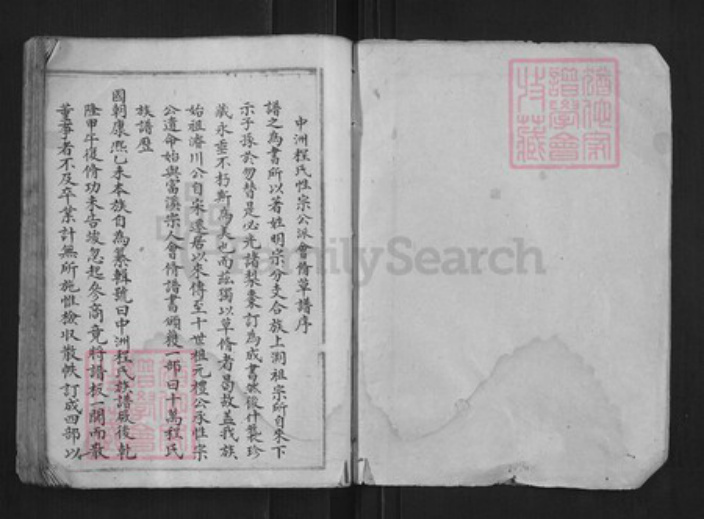 中洲程氏性宗公派會脩草譜序
譜之為書所以著姓明宗分支合族上溯祖宗所自來下
示子孫於勿替是必先諸梨棗訂為成書然後什襲珍
藏永垂不朽斯為美也而茲獨以草脩者曷故蓋我族
始祖濬川公自宋遷居以來傳至十世祖元禮公承性宗
公遺命始與富溪宗人會脩譜書頒獲一部曰十萬程氏
族譜歷
國朝康熙乙未本族自為纂輯號曰中洲程氏族譜厥後乾
隆甲午復脩功未告竣忽起參商竟將譜板一鬨而散
董事者不及卒業計無所施惟檢收散帙訂成四部以
猶他家
譜學會
收藏
FamilySearch